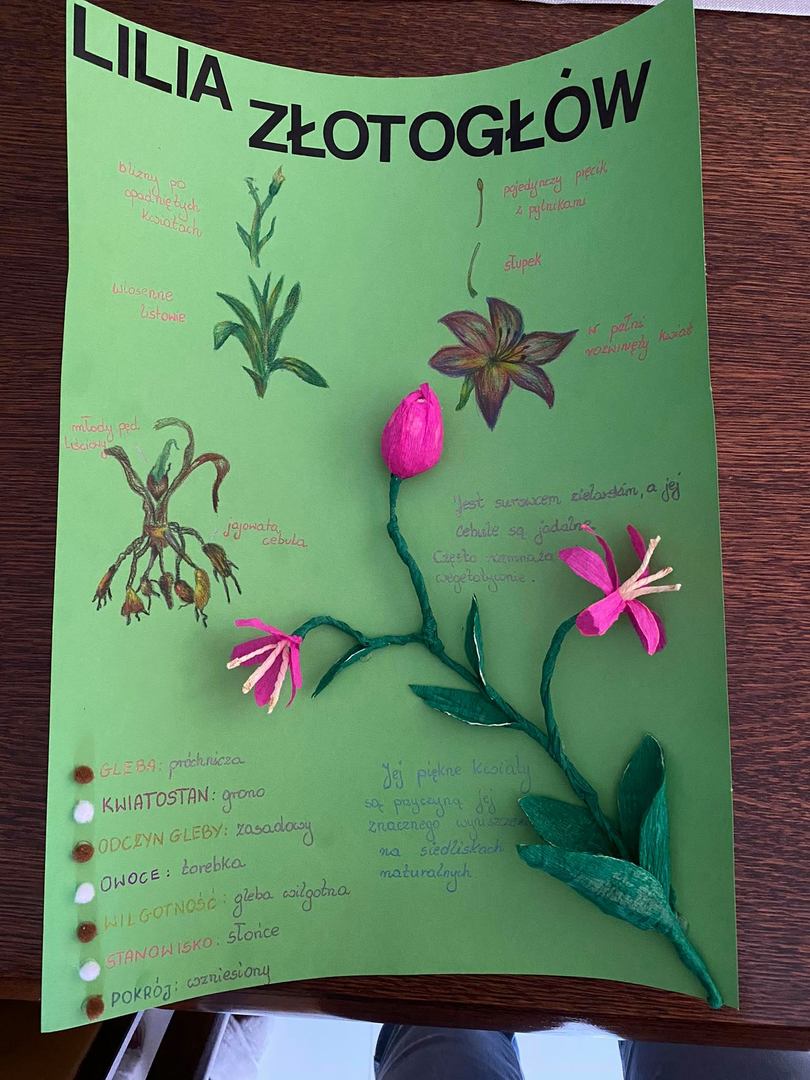 LILIA
ZŁOTOGŁÓW
blizny po
opadniętych
kwiatach
pojedynczy pręcik
z pylnikami
słupek
wiosenne
listowie
w pełni
rozwinięty kwiat
młody pęd
liściowy
jajowata
cebula
Jest surowcem zielarskim, a jej
cebule są jadalne
Często rozmnaża
wegetatywnie.
GLEBA: próchnicza
KWIATOSTAN: grono
ODCZYN GLEBY: zasadowy
OWOCE: torebka
WILGOTNOŚĆ: gleba wilgotna
STANOWISKO: słońce
POKRÓJ: wzniesiony
Jej piękne kwiaty
są przyczyną jej
znacznego wyniszcze
na siedliskach
naturalnych